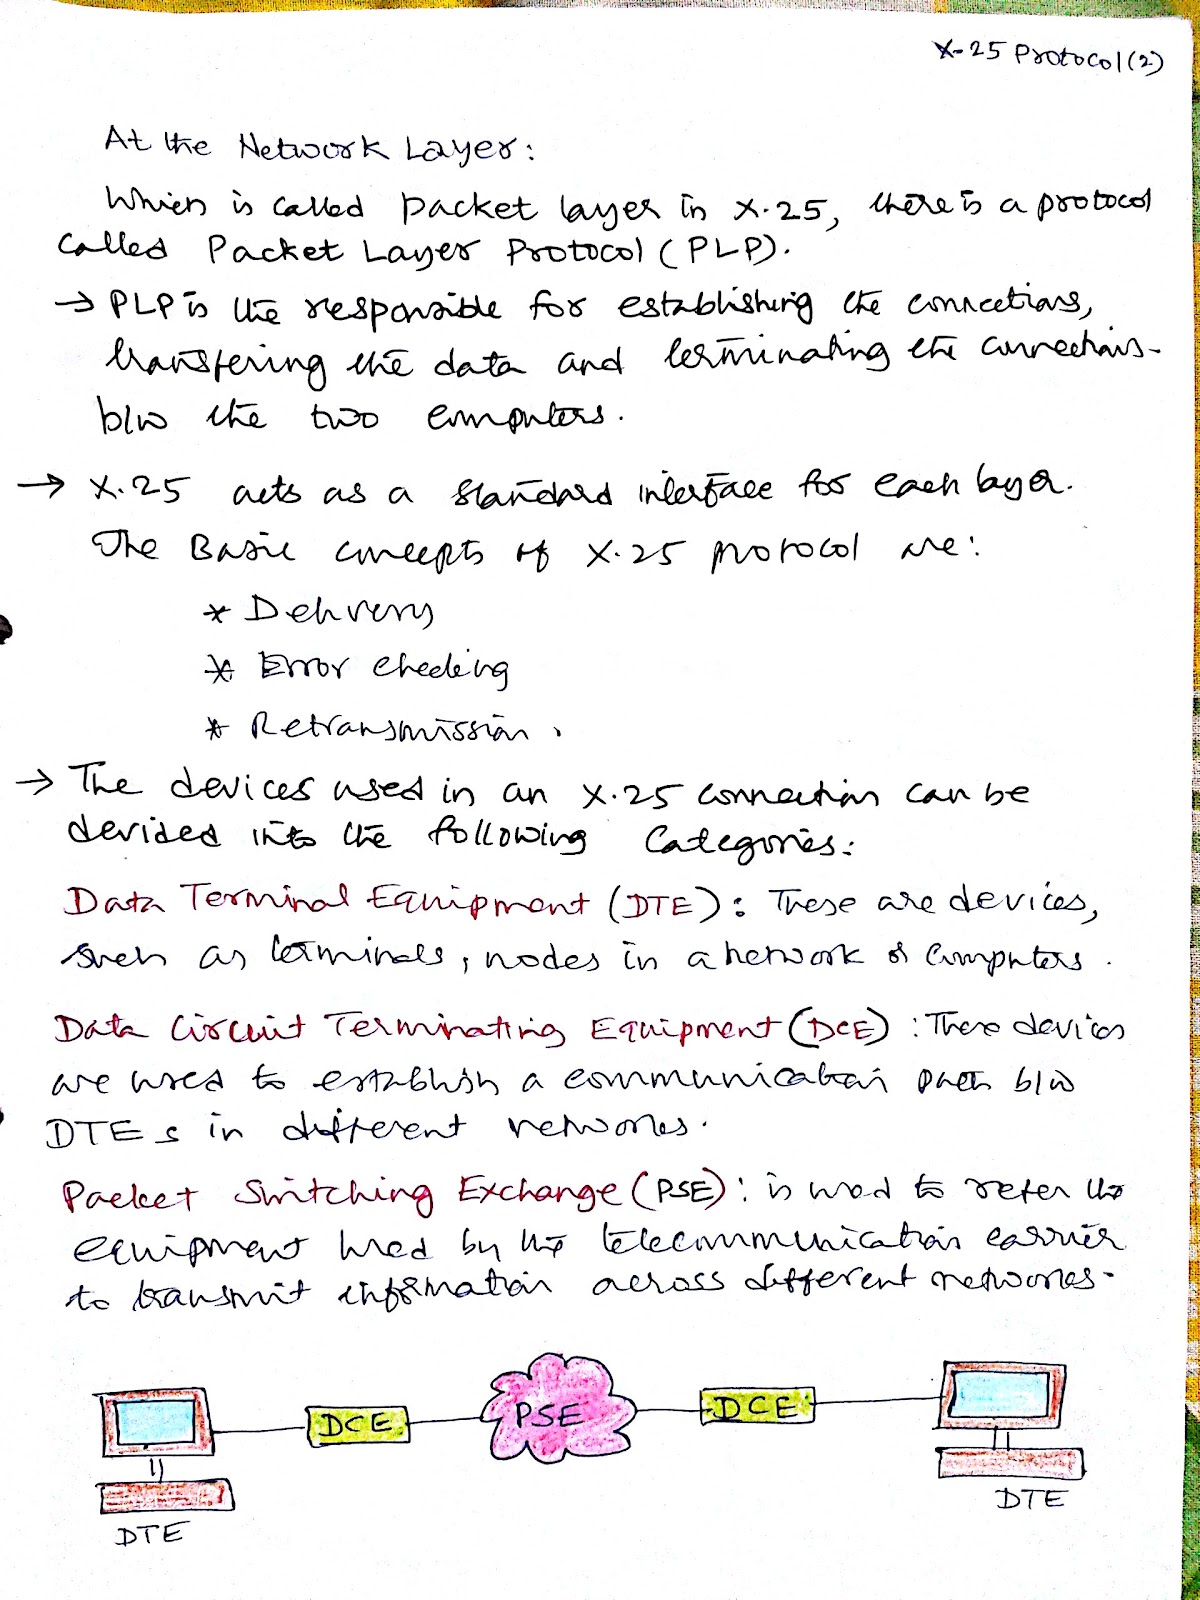 X-25 Protocol(2)
At the Network Layer:
Which is called packet layer in X.25, there is a protocol
called Packet Layer Protocol (PLP).
→ PLP is the responsible for establishing the connections,
transfering the data and terminating the connections
b/w the two computers.
→ X.25 acts as a standard interface for each layer.
The Basic concepts of X.25 protocol are:
* Delivery
* Error checking
* Retransmission.
→ The devices used in an X.25 connection can be
devided into the following Categories:
Data Terminal Equipment (DTE): These are devices,
such as terminals, nodes in a network or computers.
Data Circuit Terminating Equipment (DCE): These devices
are used to establish a communication path b/w
DTEs in different networks.
Packet Switching Exchange (PSE): is used to refer the
equipment used by the telecommunication carrier
to transmit information across different networks.
DCE PSE DCE
DTE
DTE